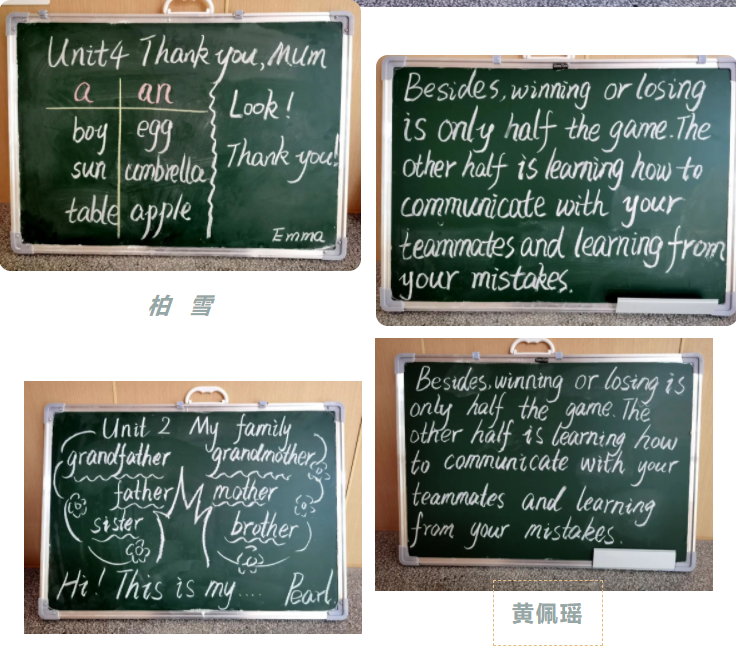 Unit4 Thank you, Mum
a an
boy egg
sun umbrella
table apple
Look!
Thank you!
Emma
柏 雪
Besides, winning or losing
is only half the game. The
other half is learning how to
communicate with your
teammates and learning from
your mistakes.
Unit 2 My family
grandfather grandmother
father mother
sister brother
Hi! This is my....
Pearl
Besides, winning or losing is
only half the game. The
other half is learning how
to communicate with your
teammates and learning
from your mistakes.
黄佩瑶